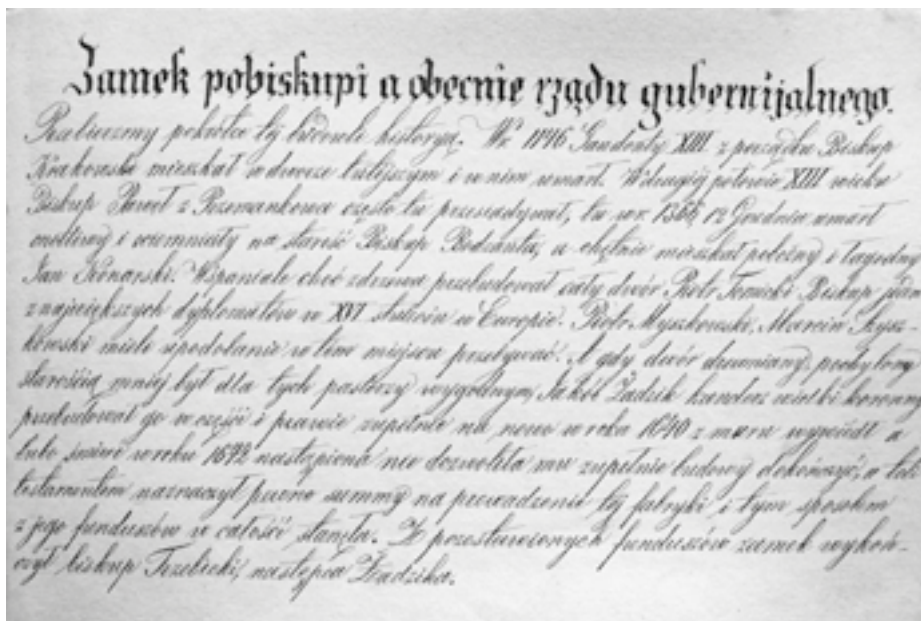 Zamek pobiskupi a obecnie rządu gubernijalnego.
pokrótce tej budowli historyą. W r. 1146 Gaudenty XIII z porządku Biskup
Krakowski mieszkał w dworze tutejszym i w nim umarł. W drugiéj połowie XIII wieku
Biskup Paweł z Przemankowa często tu przesiadywał, tu w r. Grudnia umarł
i na starość Biskup Bodzanta, a chętnie mieszkał pobożny i łagodny
Jan Konarski. Wspaniale choć z drzewa przebudował cały dwór Piotr Tomicki Biskup jeden
z największych dyplomatów w XVI stuleciu w Europie. Piotr Myszkowski, Marcin Szysz-
kowski mieli upodobanie w tém miejscu przebywać. A gdy dwór drewniany, pochylony
starością mniéj był dla tych pasterzy wygodnym, Jakób Zadzik kanclerz wielki koronny
przebudował go w części i prawie zupełnie na nowo w roku 1640 z muru wywiódł a
lubo śmierć w roku nastąpiona nie dozwoliła mu zupełnie budowy dokończyć, a
testamentem naznaczył pewne summy na prowadzenie téj fabryki i tym sposobem
z jego funduszów w całości stanęła. Z pozostawionych funduszów zamek wykoń-
czył biskup Trzebicki, następca Zadzika.